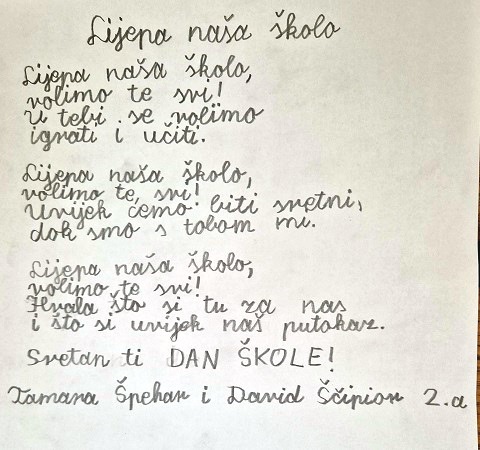 Lijepa naša školo
Lijepa naša školo,
volimo te svi!
U tebi se volimo
igrati i učiti.
Lijepa naša školo,
volimo te, svi!
Uvijek ćemo biti sretni,
dok smo s tobom mi.
Lijepa naša školo,
volimo te svi!
Hvala što si tu za nas
i što si uvijek naš putokaz.
Sretan ti DAN ŠKOLE!
Tamara Špehar i David Ščipior 2.a